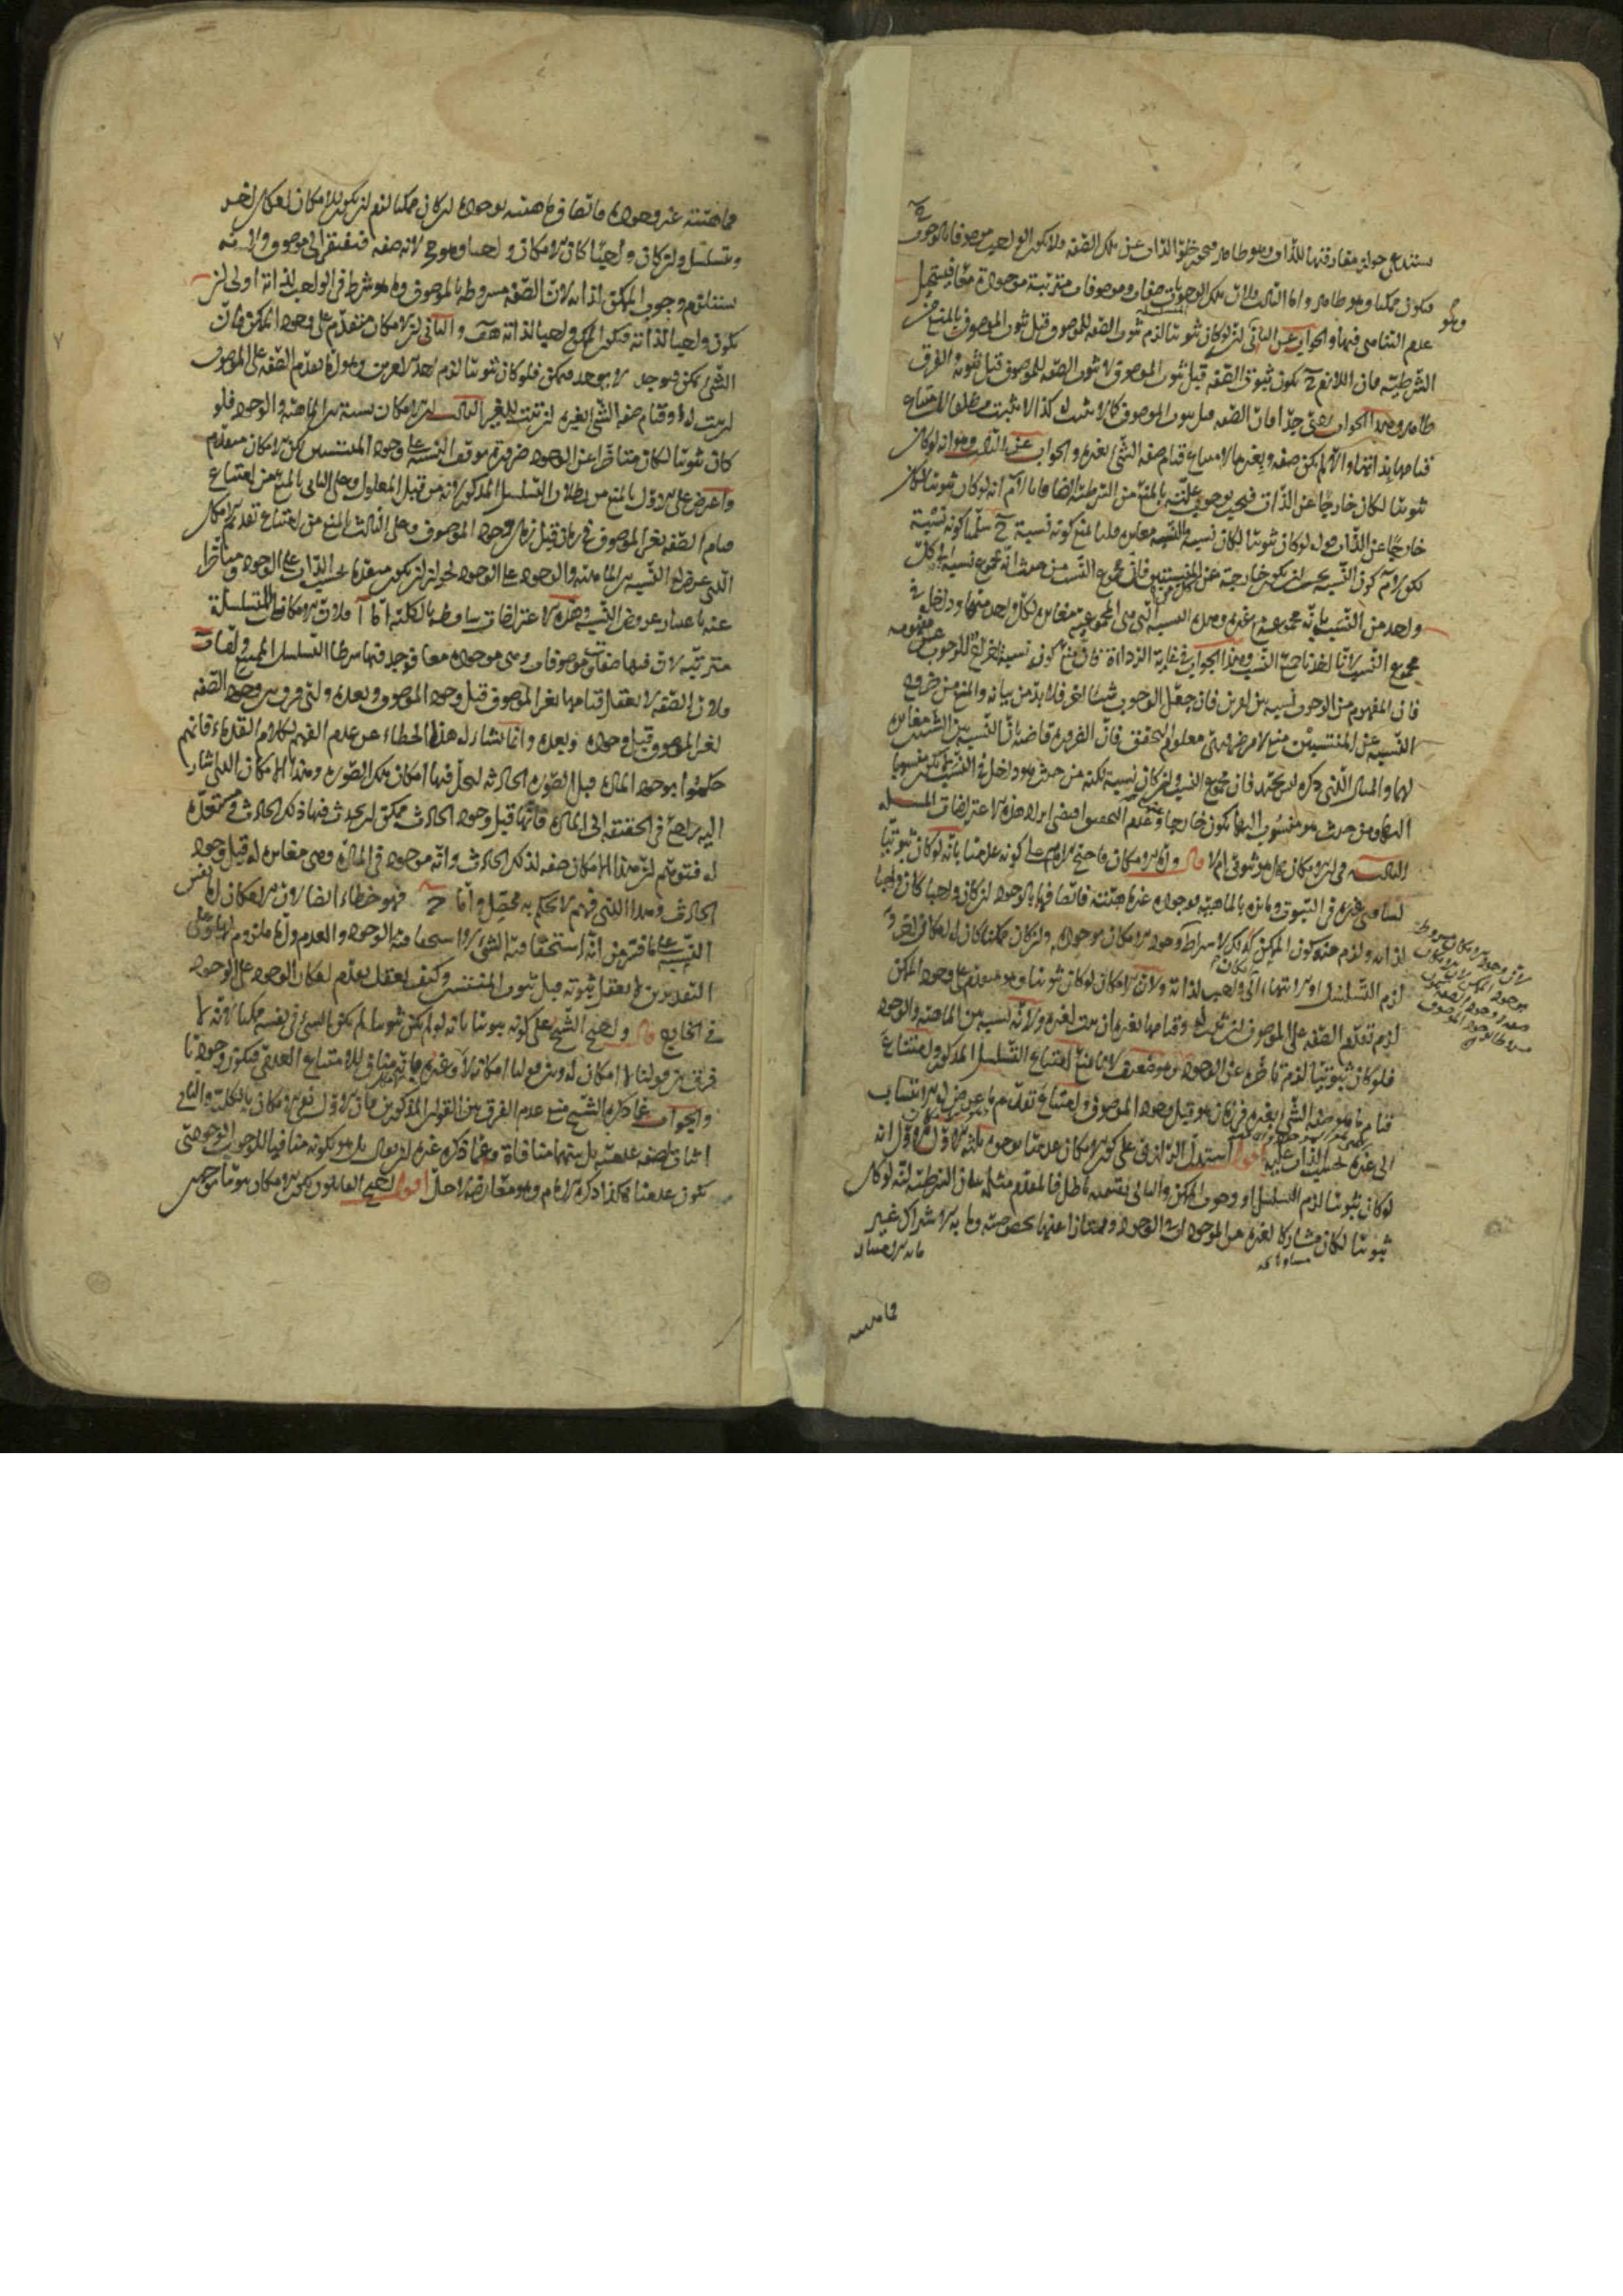 يستدعي جواز مفارقتها للذات وهو ظاهر فيجوز خلو الذات عن تلك الصفة فلا يكون الواجب موصوفا بالوجوب
فيكون ممكنا وهو ظاهر واما الثالث فلان تلك الوجوبات صفات وموصوفات مترتبة موجودة معا فيستحيل
عدم التناهي فيها والجواب عن الثاني لو كان ثبوتيا لزم ثبوت الصفة للموصوف قبل ثبوت الموصوف بالمنع من
الشرطية فان اللازم ح يكون ثبوت الصفة قبل ثبوت الموصوف لا ثبوت الصفة للموصوف قبل ثبوته والفرق
ظاهر وهذا الجواب جدا فان الصفة قبل ثبوت الموصوف كما لا تثبت له كذا لا تثبت مطلقا لامتناع
قيامها بذاتها والا لم يكن صفة وبغيرها لامتناع قيام صفة الشيء بغيره والجواب عن الثالث وهو انه لو كان
ثبوتيا لكان خارجا عن الذات فيجب بوجوب علته بالمنع من الشرطية ايضا فانا لا نم انه لو كان ثبوتيا لكان
خارجا عن الذات قوله لو كان ثبوتيا لكان نسبة والنسبة مغايرة قلنا نمنع كونه نسبة ح سلمنا كونه نسبة
لكن لا نم كون النسبة يجب ان يكون خارجة عن المنتسبين فان مجموع النسب من حيث انه مجموع نسبة الى كل
واحد من النسب بانه مجموعة مع غيره وهذه النسبة التي هي المجموعية مغايرة لكل واحد منها وداخلة في
مجموع النسب لانا اخذنا جميع النسب وهذا الجواب في غاية الرداءة فان منع كون نسبة
فان المفهوم من الوجوب نسبة بين امرين فان جعل الوجوب شيئا اخر فلا بد من بيانه والمنع من خروج
النسبة عن المنتسبين منع لامر ضروري معلوم التحقق فان الضرورة قاضية ان النسبة بين الشيئين مغايرة
لهما والمثال الذي ذكره ليس بجيد فان مجموع النسب وان كان نسبة لكنه من حيث هو داخل في النسب لم يكن منسوبا
اليها ومن حيث هو منسوب اليها يكون خارجا وعدم التحصيل افضى ايراد هذه الاعتراضات المسئلة
الثالثة في ان الامكان هل هو ثبوتي ام لا قال واما الامكان فاحتج الامام على كونه عدميا بانه لو كان ثبوتيا
لساوى غيره في الثبوت ومايزه بالماهية فوجوده غير ماهيته فاتصافها بالوجود ان كان واجبا كان واجبا
لذاته ولزم منه كون الممكن كذلك لاشتراط وجود الامكان بوجوده وان كان ممكنا كان له امكان اخر و
لزم التسلسل او الانتهاء الى واجب لذاته ولان الامكان لو كان ثبوتيا وهو متقدم على وجود الممكن
لزم تقدم الصفة على الموصوف ان ثبت له وقيامها بغيره ان ثبت لغيره ولانه نسبة بين الماهية والوجود
فلو كان ثبوتيا لزم تاخره عن الوجود وهو ضعيف لانا نمنع امتناع التسلسل المذكور وامتناع
قيام ما هو صفة الشيء بغيره في زمان هو قبل وجود الموصوف وامتناع تقدم ما عرض له الانتساب
الى غيره بحسب الذات عليه اقول استدل الرازي على كون الامكان عدميا بوجوه ثلثة الاول انه
لو كان ثبوتيا لزم التسلسل او وجوب الممكن والتالي بقسميه باطل فالمقدم مثله بيان الشرطية انه لو كان
ثبوتيا لكان مشاركا لغيره من الموجودات في الوجود وممتازا عنها بخصوصية وما به الاشتراك غير
ما به الامتياز
فماهيته
فماهيته غير وجوده فاتصاف ماهيته بوجوده ان كان ممكنا لزم ان يكون للامكان امكان اخر
ويتسلسل وان كان واجبا كان الامكان واجبا وهو مح لانه صفة فتفتقر الى موصوف ولانه
يستلزم وجوب الممكن لذاته لان الصفة مشروطة بالموصوف وما هو شرط في الواجب لذاته اولى ان
يكون واجبا لذاته فيكون الممكن واجبا لذاته هف والثاني ان الامكان متقدم على وجود الممكن فان
الشيء يمكن فيوجد لا يوجد فيمكن فلو كان ثبوتيا لزم احد الامرين وهو اما تقدم الصفة على الموصوف
ان ثبت له او قيام صفة الشيء بغيره ان ثبتت للغير الثالث ان الامكان نسبة بين الماهية والوجود فلو
كان ثبوتيا لكان متاخرا عن الوجود ضرورة توقف النسبة على وجود المنتسبين لكن الامكان متقدم
واعترض على الاول بالمنع من بطلان التسلسل المذكور لانه من قبل المعلول وعلى الثاني بالمنع من امتناع
قيام الصفة بغير الموصوف في زمان قبل زمان وجود الموصوف وعلى الثالث المنع من امتناع تقدم الامكان
الذي عرض له النسبة بين الماهية والوجود على الوجود لجواز ان يكون متقدما بحسب الذات على الوجود ومتاخرا
عنه باعتبار عروض النسبة وهذه الاعتراضات ساقطة بالكلية اما آ فلان الامكانات المتسلسلة
مترتبة لان فيها صفات وموصوفات وهي موجودة معا فوجد فيها شرطا التسلسل الممتنع
ولان الصفة لا يعقل قيامها بغير الموصوف قبل وجود الموصوف وبعده واي فرق بين وجود الصفة
لغير الموصوف قبل وجوده وبعده وانما نشأ له هذا الخطاء من عدم الفهم لكلام القدماء فانهم
حكموا بوجود المادة قبل الصورة الحادثة ليحل فيها امكان تلك الصورة وهذا الامكان الذي اشار
اليه راجع في الحقيقة الى المادة فانها قبل وجود الحادث ممكن ان يحدث فيها ذلك الحادث
له فتوهم ان هذا الامكان صفة لذلك الحادث وانه موجود في المادة وهي مغايرة له قبل وجود
الحادث وهذا الذي فهم لا يحكم به محصل واما ح فهو خطاء ايضا لان الامكان اما نفس
النسبة على ما فسر من انه استحقاقية الشيء الوجود والعدم واما ملزوم لها وعلى
التقديرين لا يعقل ثبوته قبل ثبوت المنتسبين وكيف يعقل تقدم امكان الوجود على الوجود
في الخارج قال واحتج الشيخ على كونه ثبوتيا بانه لو لم يكن ثبوتيا لم يكن الشيء في نفسه ممكنا لانه لا
فرق بين قولنا لا امكان له وبين قولنا امكانه لا وغيره بانه مناف للامتناع العدمي فيكون وجوديا
والجواب عما ذكره الشيخ منع عدم الفرق بين القولين المذكورين فان الاول نفي الامكان بالكلية والثاني
اثبات لصفة عدمية بل بينهما منافاة وعما ذكره غيره ان يقال بل هو بكونه منافيا للوجوب الوجودي
يكون عدميا هكذا ذكره الامام وهو معارضة لا حل اقول احتج القائلون بكون الامكان ثبوتيا بوجهين